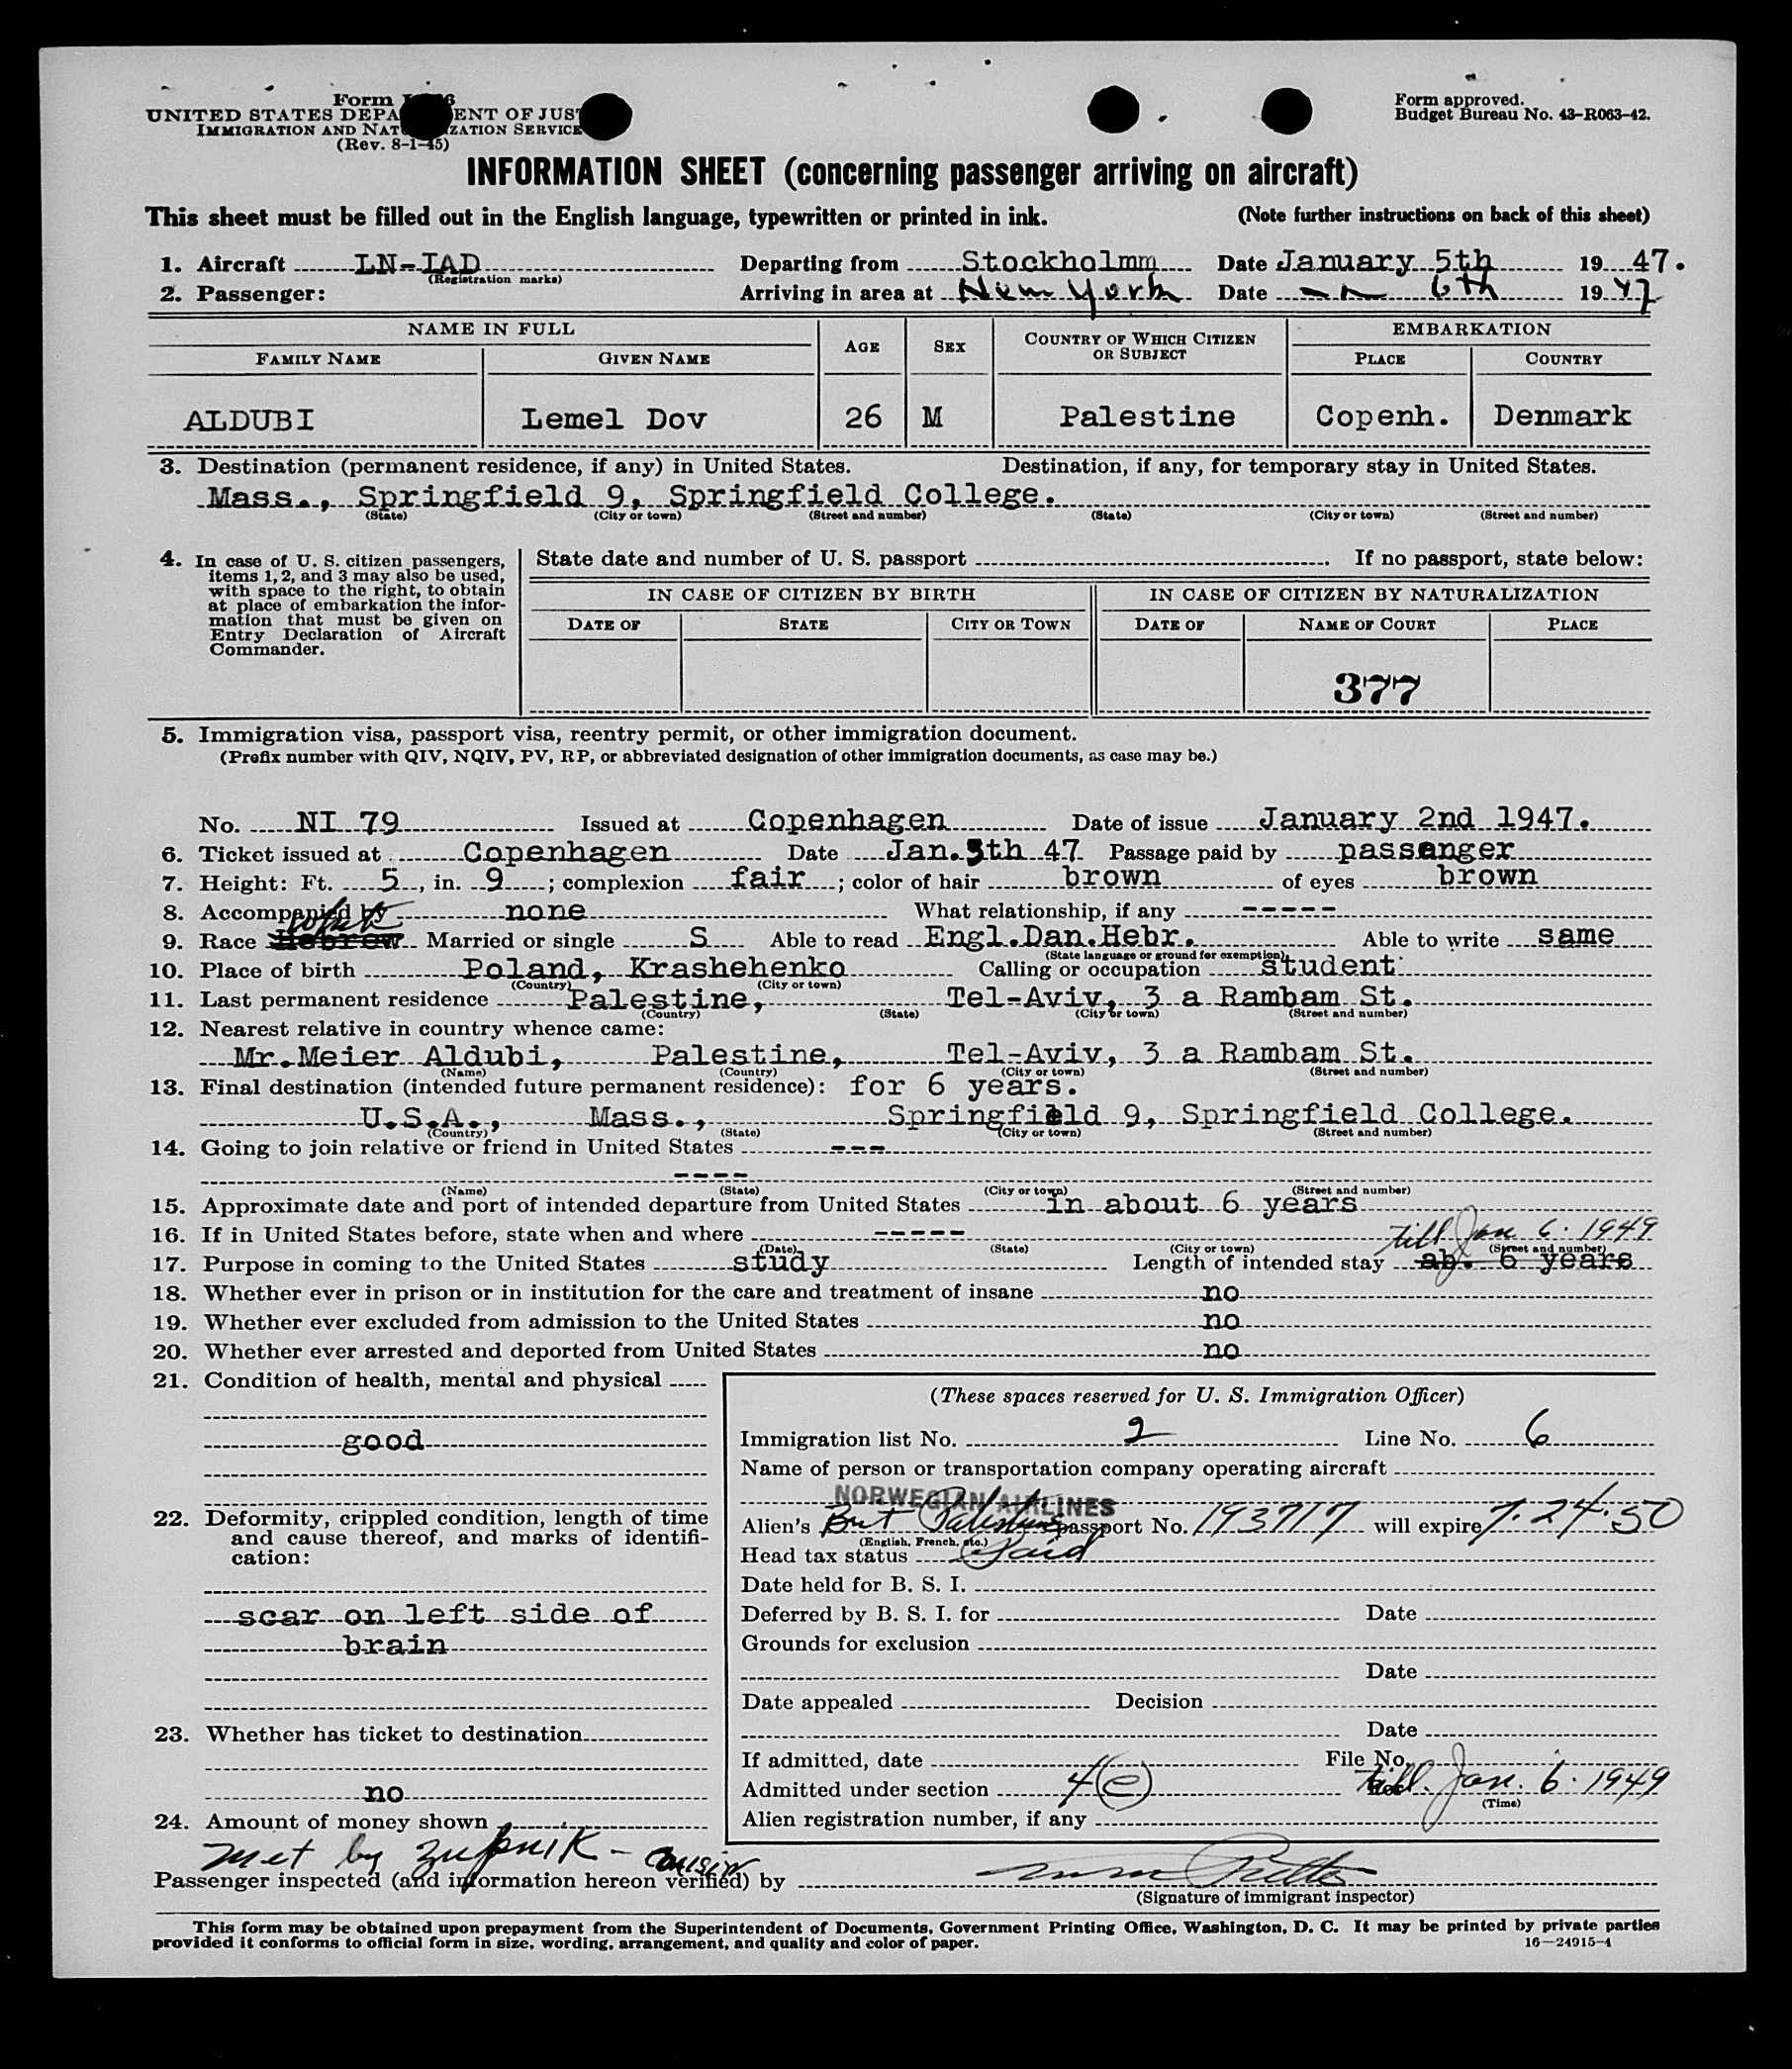 Form I-466
UNITED STATES DEPARTMENT OF JUSTICE
IMMIGRATION AND NATURALIZATION SERVICE
(Rev. 8-1-45)
Form approved.
Budget Bureau No. 43-R063-42.
INFORMATION SHEET (concerning passenger arriving on aircraft)
This sheet must be filled out in the English language, typewritten or printed in ink. (Note further instructions on back of this sheet)
1. Aircraft LN-IAD Departing from Stockholmm Date January 5th 1947.
(Registration marks)
2. Passenger: Arriving in area at New York Date 6th 1947
NAME IN FULL AGE SEX COUNTRY OF WHICH CITIZEN OR SUBJECT EMBARKATION
FAMILY NAME GIVEN NAME PLACE COUNTRY
ALDUBI Lemel Dov 26 M Palestine Copenh. Denmark
3. Destination (permanent residence, if any) in United States. Destination, if any, for temporary stay in United States.
Mass., Springfield 9, Springfield College.
(State) (City or town) (Street and number) (State) (City or town) (Street and number)
4. In case of U. S. citizen passengers,
items 1, 2, and 3 may also be used,
with space to the right, to obtain
at place of embarkation the infor-
mation that must be given on
Entry Declaration of Aircraft
Commander.
State date and number of U. S. passport . If no passport, state below:
IN CASE OF CITIZEN BY BIRTH IN CASE OF CITIZEN BY NATURALIZATION
DATE OF STATE CITY OR TOWN DATE OF NAME OF COURT PLACE
377
5. Immigration visa, passport visa, reentry permit, or other immigration document.
(Prefix number with QIV, NQIV, PV, RP, or abbreviated designation of other immigration documents, as case may be.)
No. NI 79 Issued at Copenhagen Date of issue January 2nd 1947.
6. Ticket issued at Copenhagen Date Jan. 5th 47 Passage paid by passenger
7. Height: Ft. 5, in. 9; complexion fair; color of hair brown of eyes brown
8. Accompanied by none What relationship, if any -----
white
9. Race Hebrew Married or single S Able to read Engl.Dan.Hebr. Able to write same
(State language or ground for exemption)
10. Place of birth Poland, Krashehenko Calling or occupation student
(Country) (City or town)
11. Last permanent residence Palestine, Tel-Aviv, 3 a Rambam St.
(Country) (State) (City or town) (Street and number)
12. Nearest relative in country whence came:
Mr.Meier Aldubi, Palestine, Tel-Aviv, 3 a Rambam St.
(Name) (Country) (City or town) (Street and number)
13. Final destination (intended future permanent residence): for 6 years.
U.S.A., Mass., Springfield 9, Springfield College.
(Country) (State) (City or town) (Street and number)
14. Going to join relative or friend in United States ---
----
(Name) (State) (City or town) (Street and number)
15. Approximate date and port of intended departure from United States in about 6 years
16. If in United States before, state when and where -----
till Jan 6. 1949
(Date) (State) (City or town) (Street and number)
17. Purpose in coming to the United States study Length of intended stay ab. 6 years
18. Whether ever in prison or in institution for the care and treatment of insane no
19. Whether ever excluded from admission to the United States no
20. Whether ever arrested and deported from United States no
21. Condition of health, mental and physical
good
22. Deformity, crippled condition, length of time
and cause thereof, and marks of identifi-
cation:
scar on left side of
brain
23. Whether has ticket to destination
no
24. Amount of money shown
met by Zupnik - cousin
(These spaces reserved for U. S. Immigration Officer)
Immigration list No. 2 Line No. 6
Name of person or transportation company operating aircraft
NORWEGIAN AIRLINES
Alien's Brit Palestine passport No. 193717 will expire 7.24.50
(English, French, etc.)
Head tax status Paid
Date held for B. S. I.
Deferred by B. S. I. for Date
Grounds for exclusion
Date
Date appealed Decision
Date
If admitted, date File No.
Admitted under section 4(e) till Jan. 6. 1949
(Time)
Alien registration number, if any
Passenger inspected (and information hereon verified) by
(Signature of immigrant inspector)
This form may be obtained upon prepayment from the Superintendent of Documents, Government Printing Office, Washington, D. C. It may be printed by private parties
provided it conforms to official form in size, wording, arrangement, and quality and color of paper. 16—24915-4